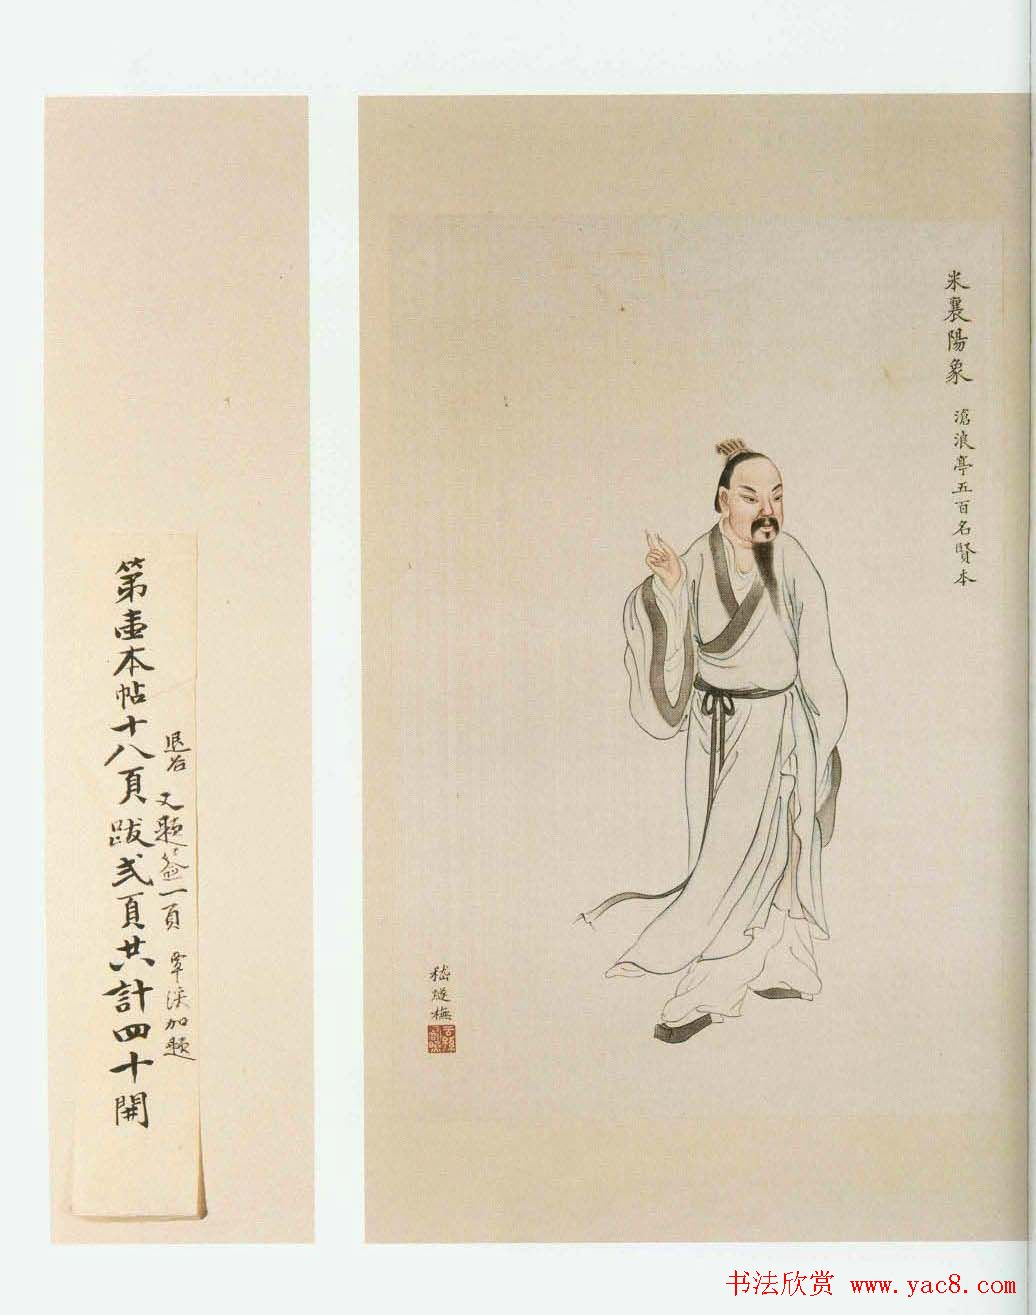 米襄陽象
滄浪亭五百名賢本
嵇燧橅
退谷 又題簽一頁 覃溪加題
第壺本帖十八頁跋弍頁共計四十開
书法欣赏 www.yac8.com